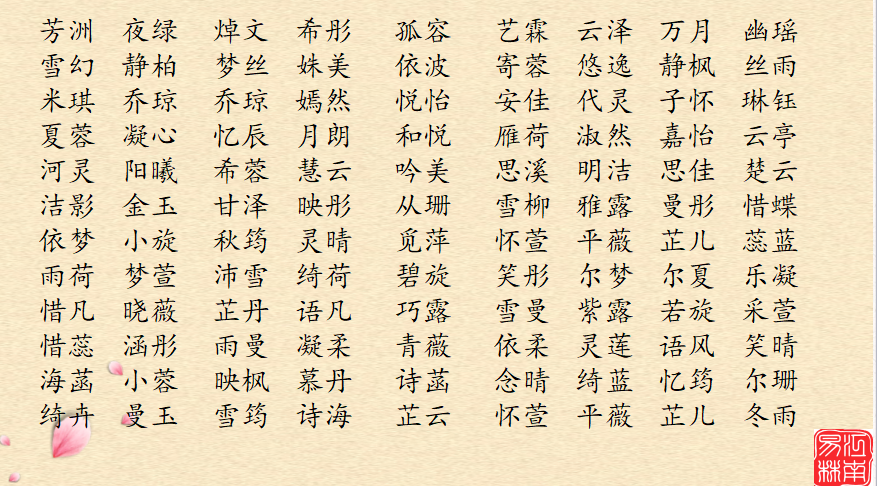 芳洲 夜绿 焯文 希彤 孤容 艺霖 云泽 万月 幽瑶
雪幻 静柏 梦丝 姝美 依波 寄蓉 悠逸 静枫 丝雨
米琪 乔琼 乔琼 嫣然 悦怡 安佳 代灵 子怀 琳钰
夏蓉 凝心 忆辰 月朗 和悦 雁荷 淑然 嘉怡 云亭
河灵 阳曦 希蓉 慧云 吟美 思溪 明洁 思佳 楚云
洁影 金玉 甘泽 映彤 从珊 雪柳 雅露 曼彤 惜蝶
依梦 小旋 秋筠 灵晴 觅萍 怀萱 平薇 芷儿 蕊蓝
雨荷 梦萱 沛雪 绮荷 碧旋 笑彤 尔梦 尔夏 乐凝
惜凡 晓薇 芷丹 语凡 巧露 雪曼 紫露 若旋 采萱
惜蕊 涵彤 雨曼 凝柔 青薇 依柔 灵莲 语风 笑晴
海菡 小蓉 映枫 慕丹 诗菡 念晴 绮蓝 忆筠 尔珊
绮卉 曼玉 雪筠 诗海 芷云 怀萱 平薇 芷儿 冬雨
江南易林